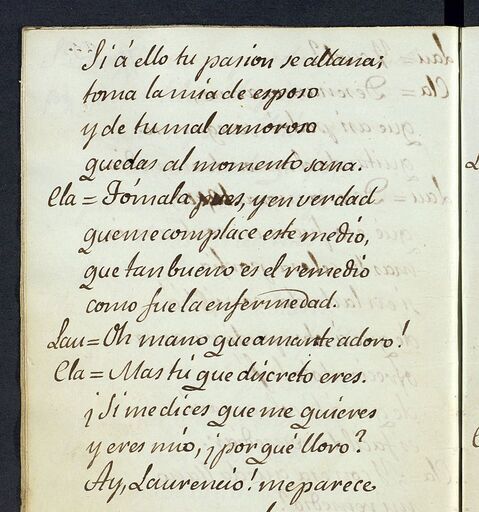 Si á ello tu pasion se allana;
toma la mia de esposo
y de tu mal amoroso
quedas al momento sana.
Cla = Tómala pues, y en verdad
que me complace este medio,
que tan bueno es el remedio
como fue la enfermedad.
Lau = Oh mano que amante adoro!
Cla = Mas tú que discreto eres.
¡Si me dices que me quieres
y eres mio, ¡por qué lloro?
Ay, Laurencio! me parece